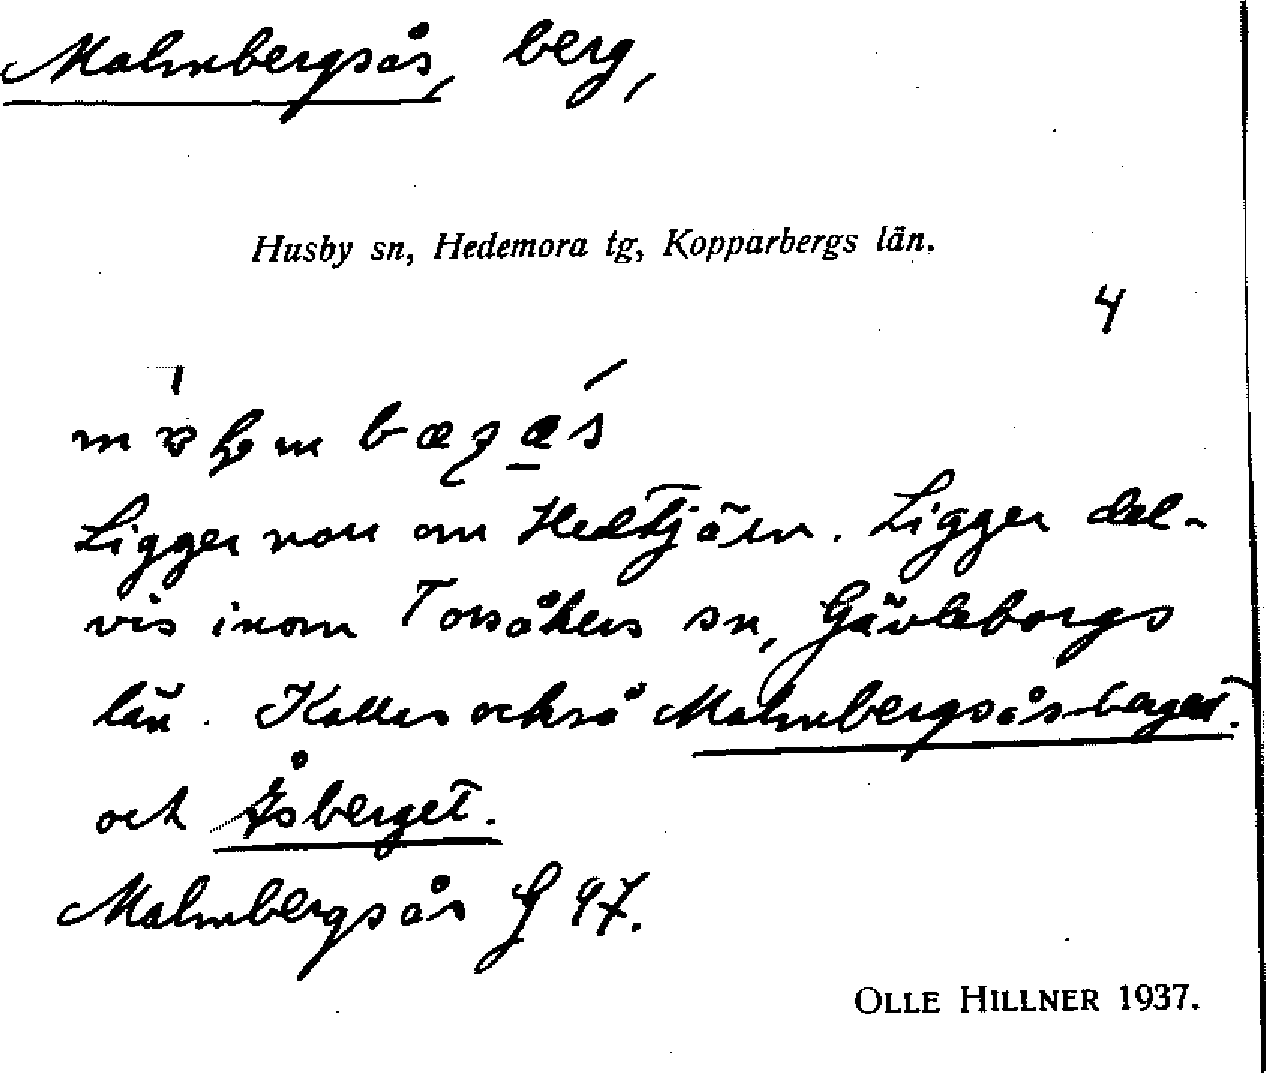 Malmbergsås, berg,
Husby sn, Hedemora tg, Kopparbergs län.
4
Ligger norr om Hedtjärn. Ligger del-
vis inom Torsåkers sn, Gävleborgs
län. Kallas också Malmbergsåsberget
och Åsberget.
Malmbergsås f 97.
OLLE HILLNER 1937.